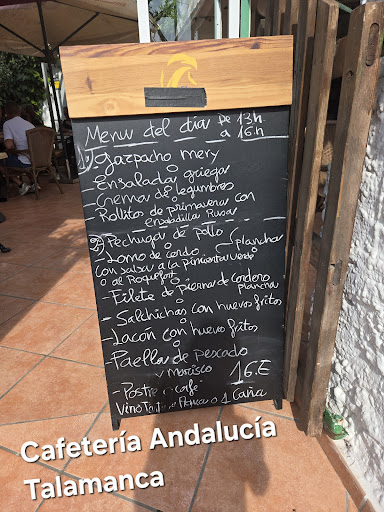 Menu del dia DE 13h.
a 16.h
1º) gazpacho mery
- Ensalada griega
- Crema de legumbres
- Rollitos de primavera con
ensaladilla Rusa
2º) Pechuga de pollo
- Lomo de cerdo (plancha
con salsa a la pimienta verde
o al Roquefort
- Filete de pierna de cordero
plancha
- Salchichas con huevos fritos
- Lacón con huevo fritos
- Paella de pescado
y marisco 16.E
- Postre o café
Vino o 1 Caña
Cafetería Andalucía
Talamanca